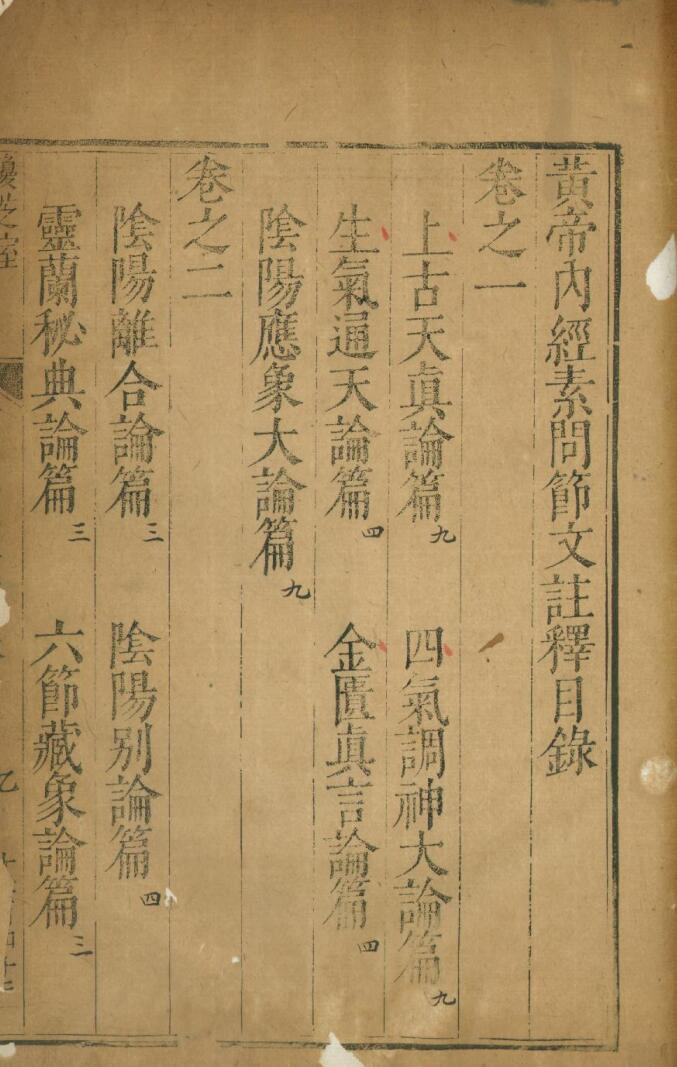 黃帝內經素問節文註釋目錄
卷之一
上古天眞論篇九 四氣調神大論篇九
生氣通天論篇四 金匱眞言論篇四
陰陽應象大論篇九
卷之二
陰陽離合論篇三 陰陽别論篇四
靈蘭秘典論篇三 六節藏象論篇三